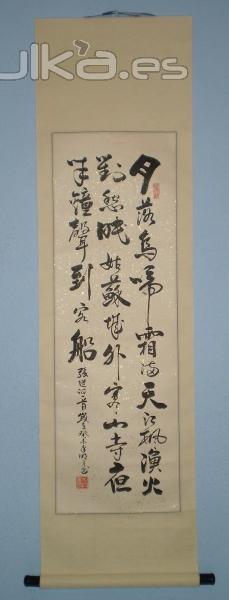 ulka.es
月落烏啼霜满天江楓漁火
對愁眠姑蘇城外寒山寺夜
半鐘聲到客船 張继詩一首